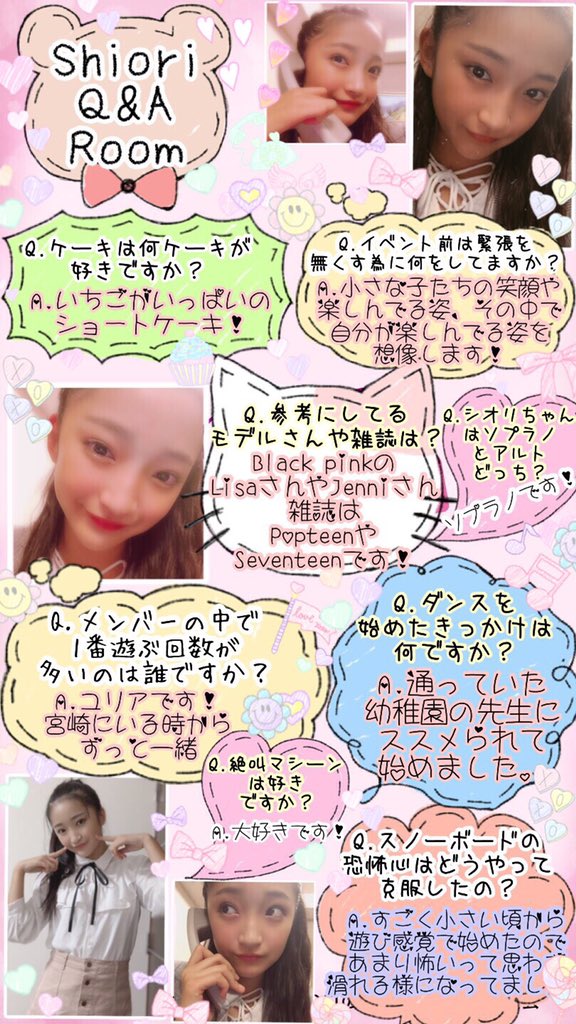 Shiori
Q&A
Room
Q.ケーキは何ケーキが
好きですか?
A.いちごがいっぱいの
ショートケーキ!
Q.イベント前は緊張を
無くす為に何をしてますか?
A.小さな子たちの笑顔や
楽しんでる姿、その中で
自分が楽しんでる姿を
想像します!
Q.参考にしてる
モデルさんや雑誌は?
Black pinkの
LisaさんやJenniさん
雑誌は
Popteenや
Seventeenです!
Q.シオリちゃん
はソプラノ
とアルト
どっち?
ソプラノです!
Q.メンバーの中で
1番遊ぶ回数が
多いのは誰ですか?
A.ユリアです!
宮崎にいる時から
ずっと一緒
Q.ダンスを
始めたきっかけは
何ですか?
A.通っていた
幼稚園の先生に
ススメられて
始めました。
Q.絶叫マシーン
は好き
ですか?
A.大好きです!
Q.スノーボードの
恐怖心はどうやって
克服したの?
A.すごく小さい頃から
遊び感覚で始めたので
あまり怖いって思わ
滑れる様になってまし